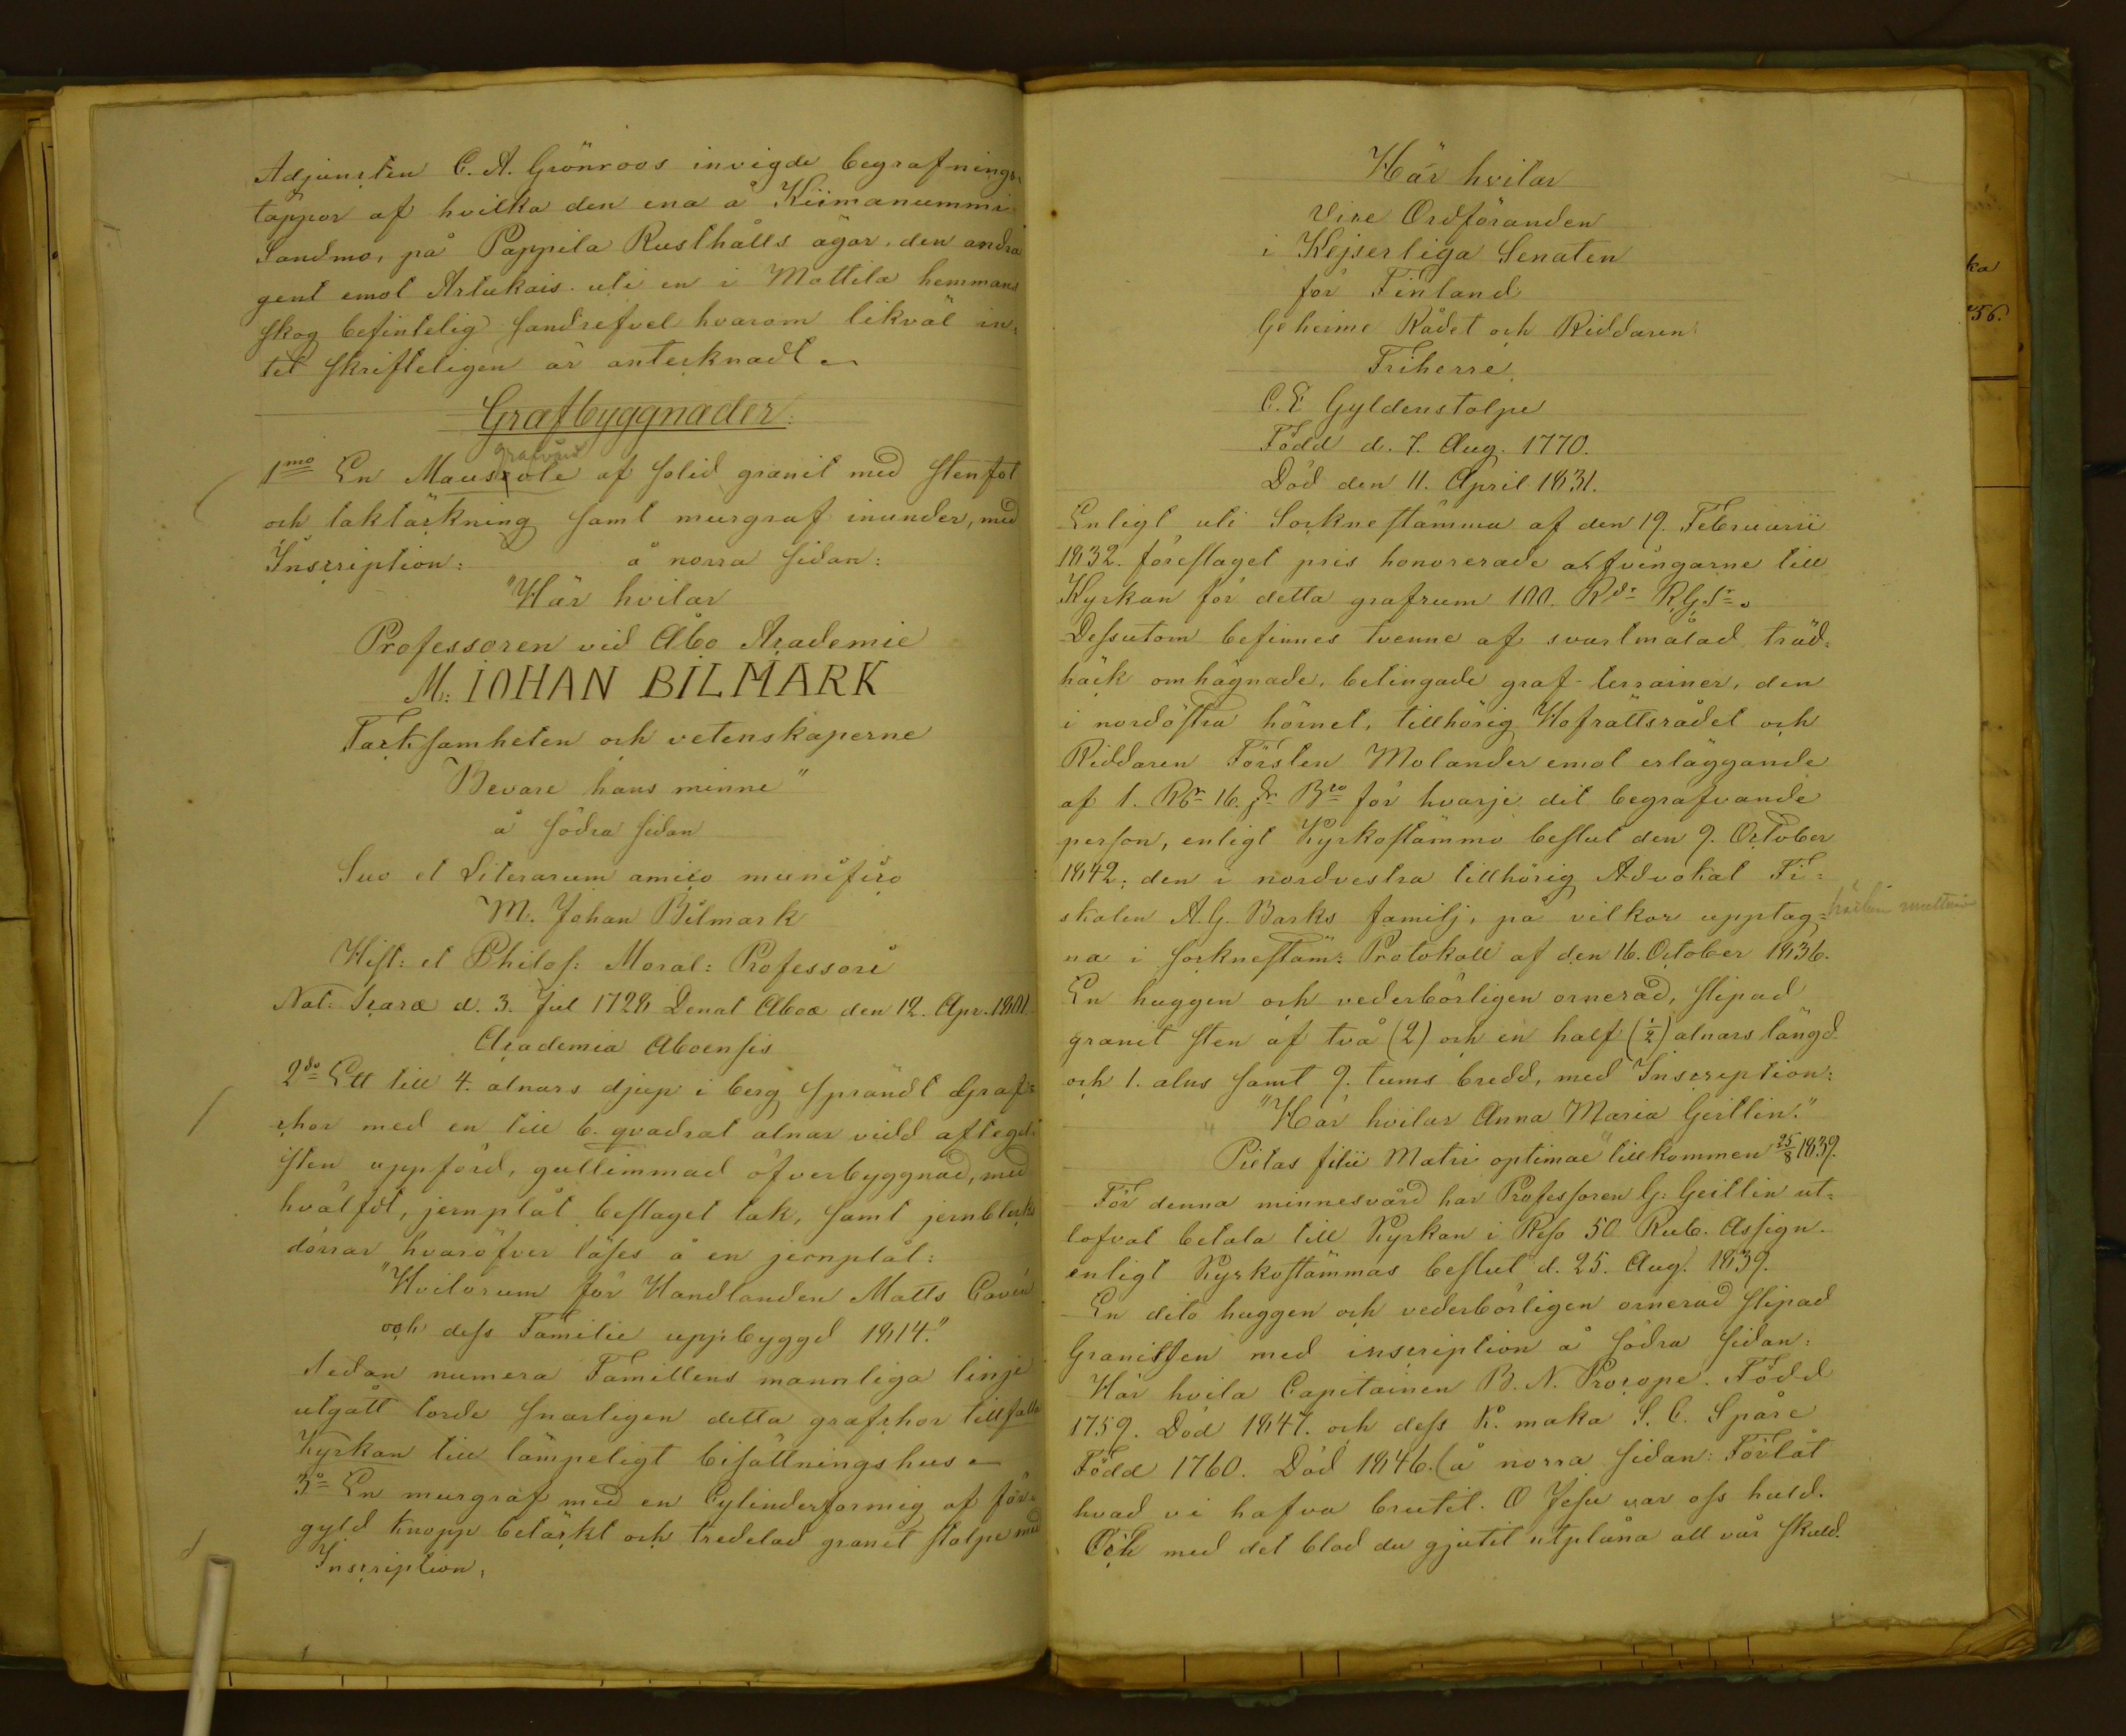 Adjuncten C. A. Grönroos invigde begrafnings-
täppor af hvilka den ena å Kiimanummi
Sandmo, på Pappila Rusthålls ägor, den andra
gent emot Artukais uti en i Mattila hemmans
skog befintelig sandrefvel hvarom likväl in-
tet skrifteligen är antecknadt.
Grafbyggnader.
grafvård
1mo En Mausole af solid granit med stenfot
och taktäckning samt murgraf inunder, med
Inscription: å norra sidan:
"Här hvilar
Professoren vid Åbo Academie
M: IOHAN BILMARK
Tacksamheten och vetenskaperne
Bevare hans minne"
å södra sidan
Suo et Literarum amico munifico
M. Johan Bilmark
Hist: et Philos: Moral: Professori
Nat: Scaræ d. 3. Jul 1728 Denat Aboæ den 12. Apr. 1801
Academia Aboensis
2do Ett till 4. alnars djup i berg sprändt Graf-
chor med en till 6. qvadrat alnar vidd af tegel-
sten uppförd, gullimmad öfverbyggnad, med
hvälfdt, jernplåt beslaget tak, samt jernblecks
dörrar hvaröfver läses å en jernplåt:
"Hvilorum för Handlanden Matts Cavén
och dess Familie uppbyggd 1814."
Sedan numera Famillens mannliga linje
utgått torde snarligen detta grafchor tillfalla
Kyrkan till lämpeligt bisättningshus.
3o En murgraf med en Cylinderformig af för-
gyld knopp betäckt och tredelad granit stolpe med
Inscription,
Här hvilar
Vice Ordföranden
i Kejserliga Senaten
för Finland
Geheime Rådet och Riddaren
Friherre
C. E Gyldenstolpe
Född d. 7. Aug. 1770.
Död den 11. April 1831.
Enligt uti Socknestämma af den 19. Februarii
1832. föreslaget pris honorerade arfvingarne till
Kyrkan för detta grafrum 100. Rdr RGSr.
Dessutom befinnes tvenne af svartmålad träd-
häck omhägnade, betingade graf-terrainer, den
i nordöstra hörnet, tillhörig Hofrättsrådet och
Riddaren Försten Molander emot erläggande
af 1. Rdr 16. sr Bco för hvarje dit begrafvande
person, enligt Kyrkostämmo beslut den 9. October
1842; den i nordvestra tillhörig Advokat Fi-
skalen A. G. Barks familj, på vilkor upptag-
na i socknestäm: Protokoll af den 16. October 1836.
En huggen och vederbörligen ornerad, slipad
granit sten af två (2) och en half (1/2) alnars längd
och 1. alns samt 9. tums bredd, med Inscription:
"Här hvilar Anna Maria Geitlin."
Pietas filii Matri optimae" tillkommen 25/8 1839.
För denna minnesvård har Professoren G: Geitlin ut-
lofvat betala till Kyrkan i Reso 50 Rub. Assign.
enligt Kyrkostämmas beslut d. 25. Aug. 1839.
En dito huggen och vederbörligen ornerad slipad
Granitsten med inscription å södra sidan:
Här hvila Capitainen B. N. Procope. Född
1759. Död 1847. och dess K. maka S. C. Spåre
Född 1760. Död 1846. (å norra sidan: Förlåt
hvad vi hafva brutit. O Jesu var oss huld.
Och med det blod du gjutit utplåna all vår skuld.